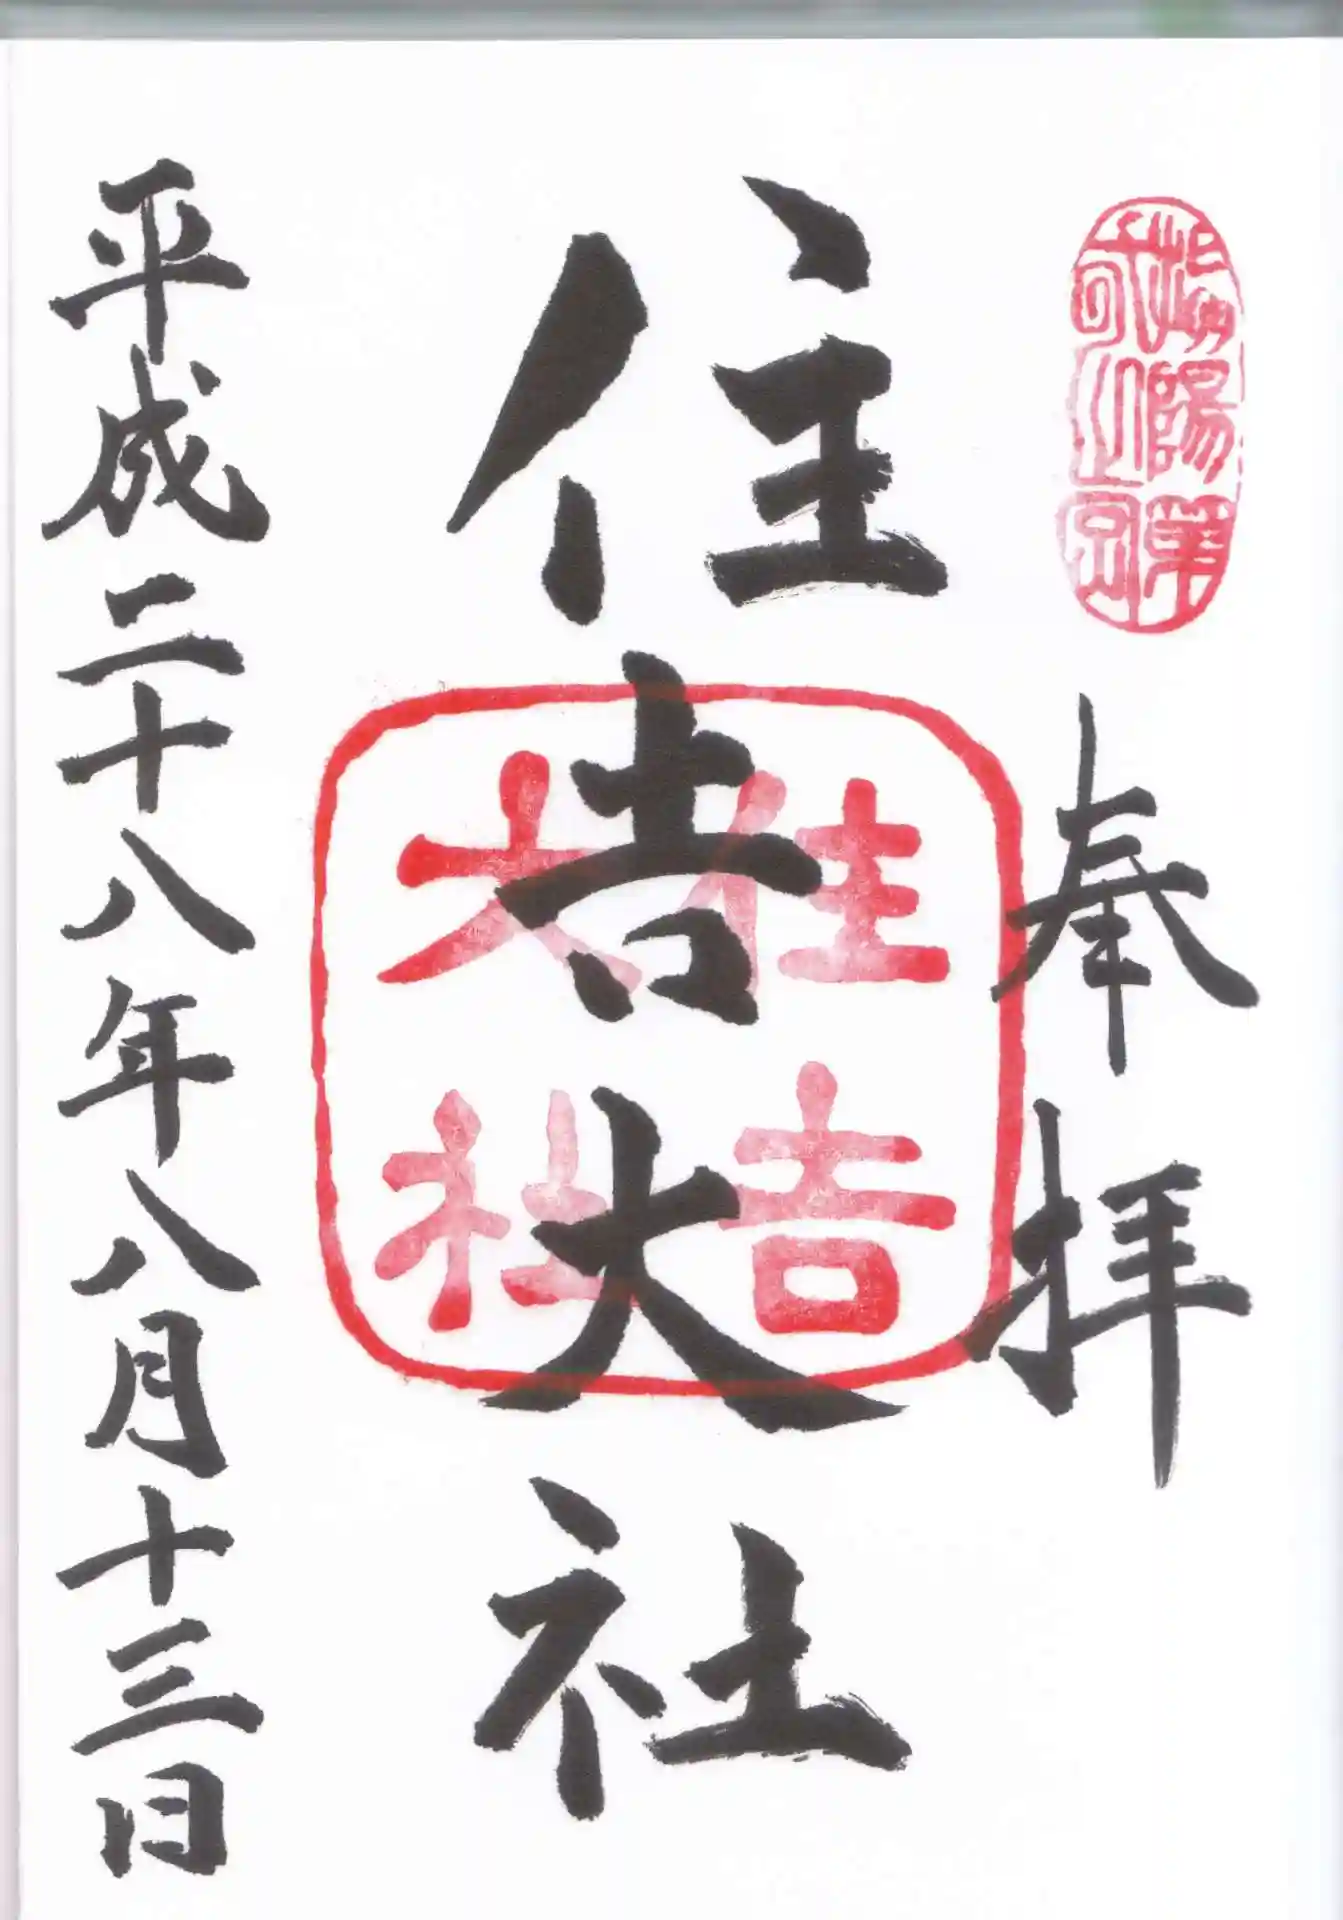 奉拝
住吉大社
平成二十八年八月十三日
住吉
大社